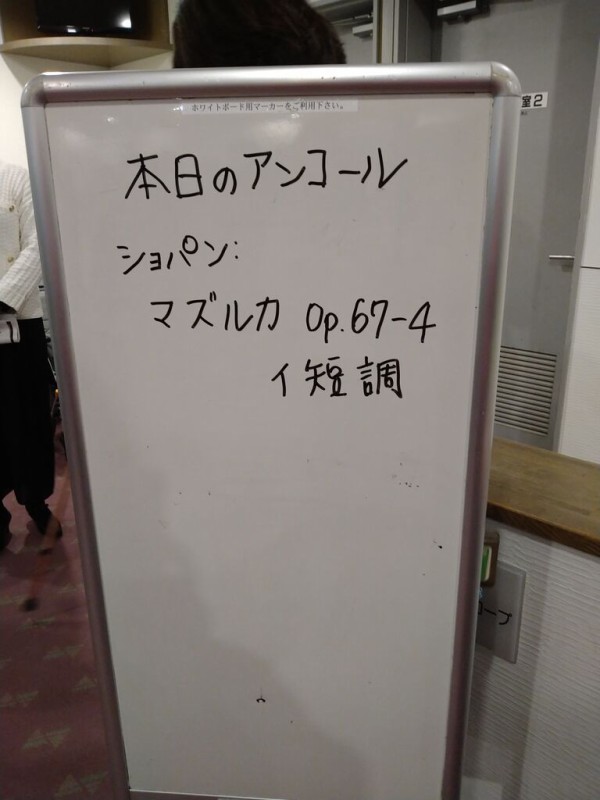 ホワイトボード用マーカーをご利用下さい。
室2
本日のアンコール
ショパン:
マズルカ Op.67-4
イ短調
ープ